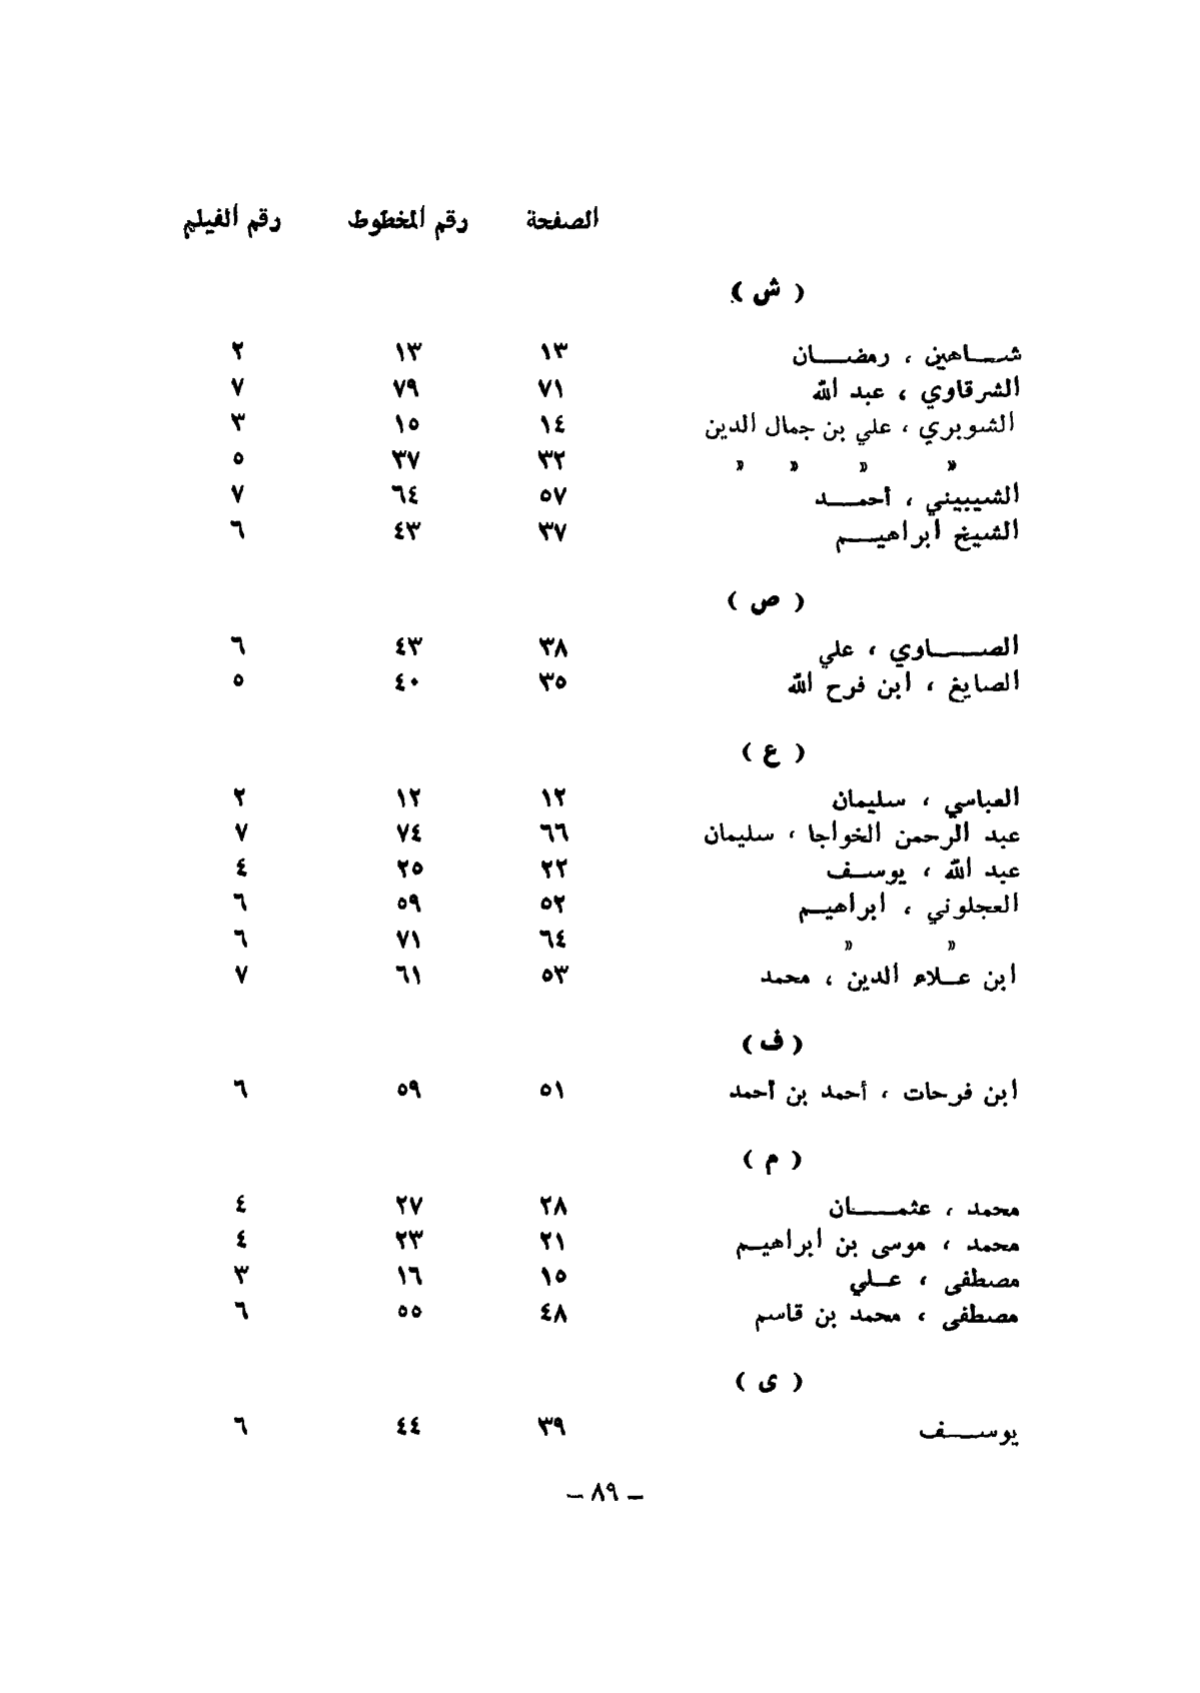 الصفحة رقم المخطوط رقم الفيلم
( ش )
شاهين ، رمضان ١٣ ١٣ ٢
الشرقاوي ، عبد الله ٧١ ٧٩ ٧
الشوبري ، علي بن جمال الدين ١٤ ١٥ ٣
» » » » ٣٢ ٣٧ ٥
الشيبيني ، أحمد ٥٧ ٦٤ ٧
الشيخ ابراهيم ٣٧ ٤٣ ٦
( ص )
الصاوي ، علي ٣٨ ٤٣ ٦
الصايغ ، ابن فرح الله ٣٥ ٤٠ ٥
( ع )
العباسي ، سليمان ١٢ ١٢ ٢
عبد الرحمن الخواجا ، سليمان ٦٦ ٧٤ ٧
عبد الله ، يوسف ٢٢ ٢٥ ٤
العجلوني ، ابراهيم ٥٢ ٥٩ ٦
» » ٦٤ ٧١ ٦
ابن علاء الدين ، محمد ٥٣ ٦١ ٧
( ف )
ابن فرحات ، أحمد بن أحمد ٥١ ٥٩ ٦
( م )
محمد ، عثمان ٢٨ ٢٧ ٤
محمد ، موسى بن ابراهيم ٢١ ٢٣ ٤
مصطفى ، علي ١٥ ١٦ ٣
مصطفى ، محمد بن قاسم ٤٨ ٥٥ ٦
( ى )
يوسف ٣٩ ٤٤ ٦
– ٨٩ –